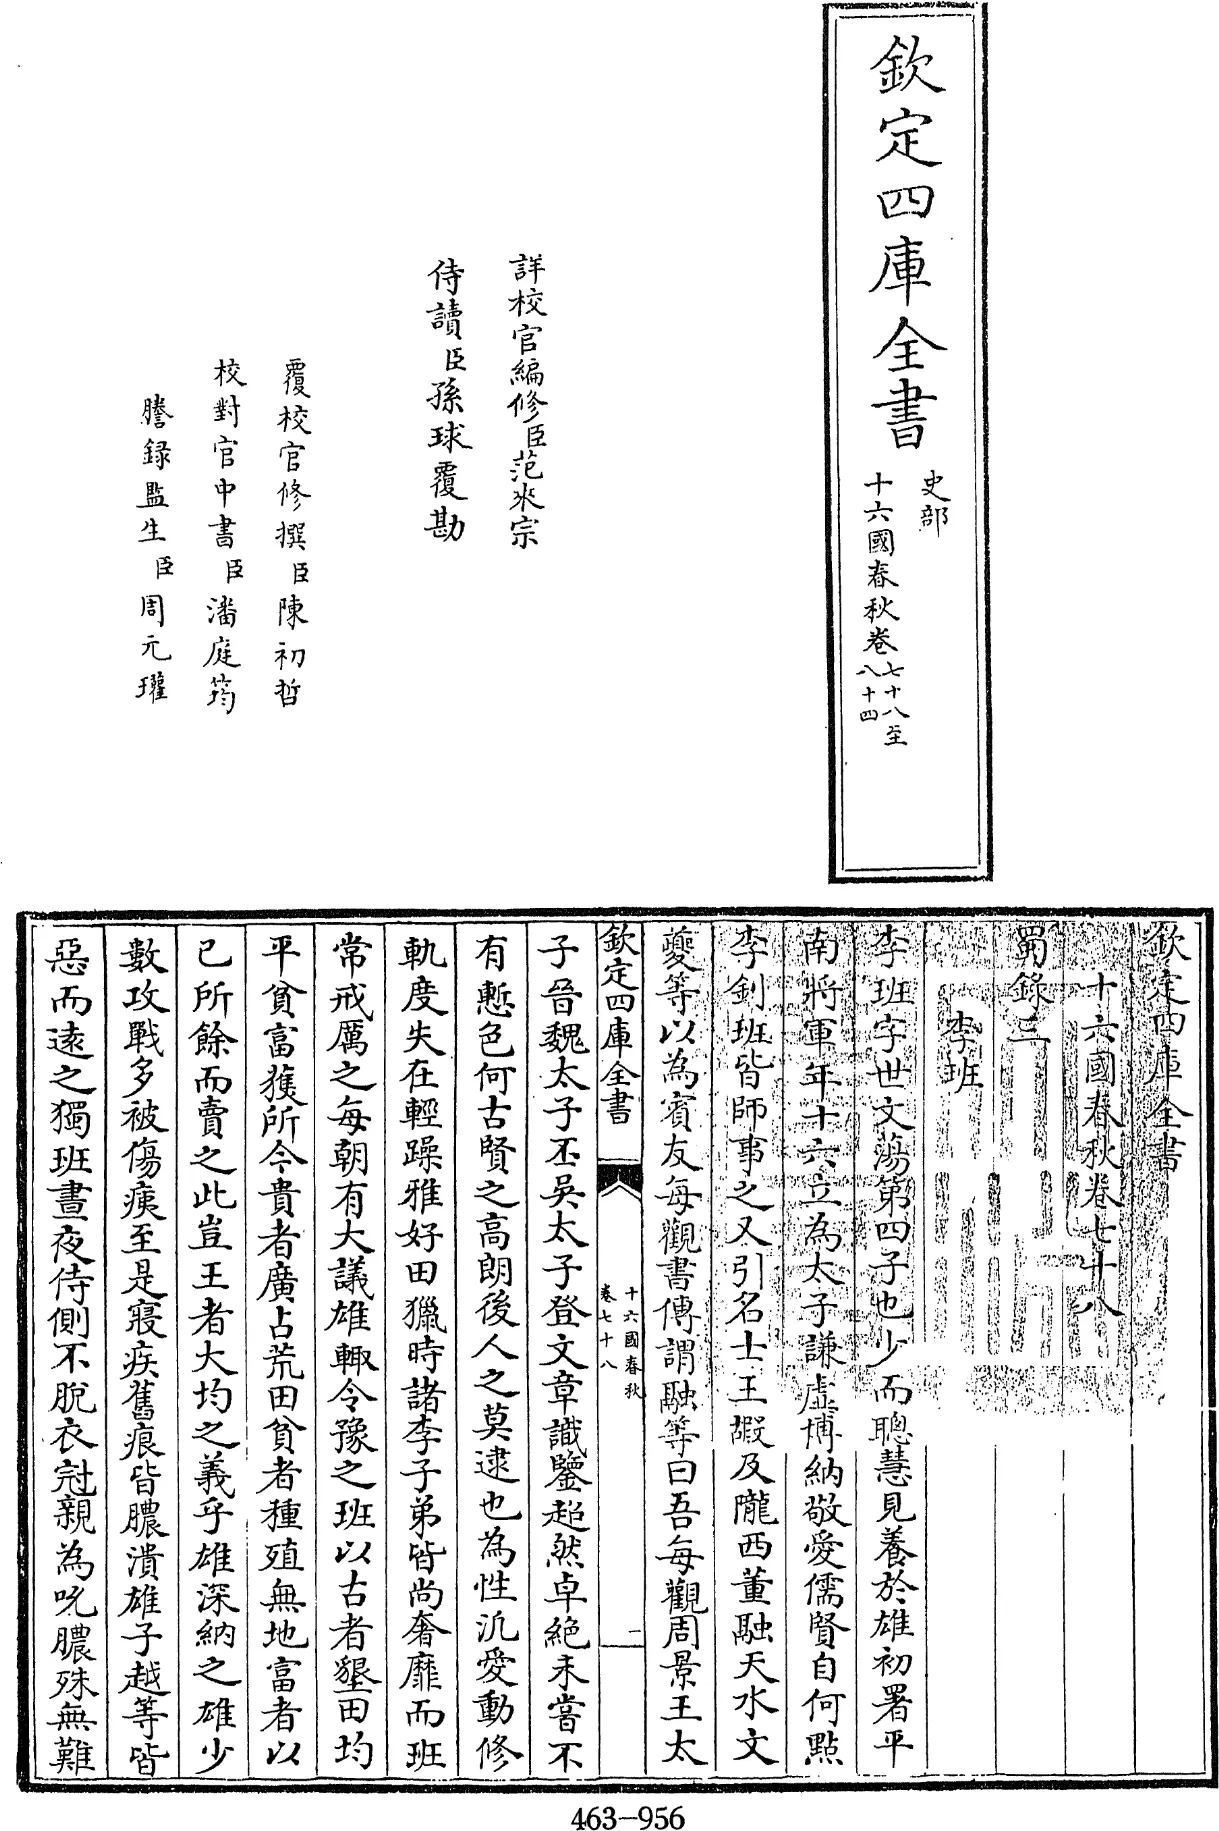 欽定四庫全書
史部
十六國春秋卷七十八至
八十四
詳校官編修臣范來宗
侍讀臣孫球覆勘
覆校官修撰臣陳初哲
校對官中書臣潘庭筠
謄錄監生臣周元瓘
欽定四庫全書
十六國春秋卷七十八
蜀錄三
李班
李班字世文蕩第四子也少而聰慧見養於雄初署平
南將軍年十六立為太子謙虛博納敬愛儒賢自何點
李釗班皆師事之又引名士王嘏及隴西董融天水文
夔等以為賓友每觀書傳謂融等曰吾每觀周景王太
欽定四庫全書
十六國春秋
卷七十八
一
子晉魏太子丕吳太子登文章識鑒超然卓絕未嘗不
有慙色何古賢之高朗後人之莫逮也為性汎愛動修
軌度失在輕躁雅好田獵時諸李子弟皆尚奢靡而班
常戒厲之每朝有大議雄輙令豫之班以古者墾田均
平貧富獲所今貴者廣占荒田貧者種殖無地富者以
已所餘而賣之此豈王者大均之義乎雄深納之雄少
數攻戰多被傷痍至是寢疾舊痕皆膿潰雄子越等皆
惡而遠之獨班晝夜侍側不脫衣冠親為吮膿殊無難
463-956